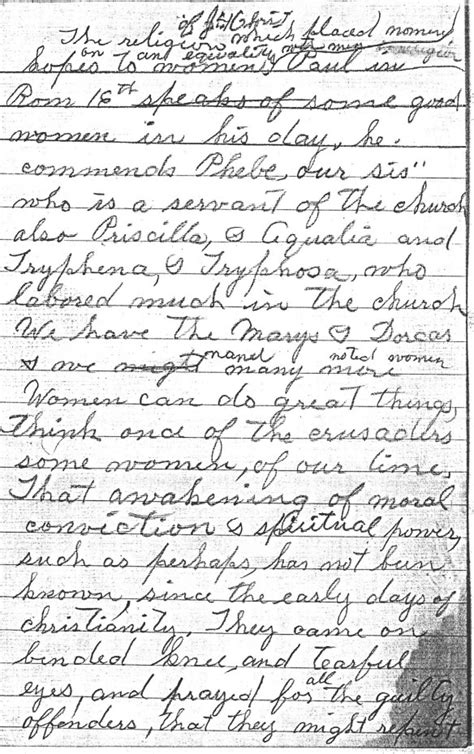 of J[esus] Christ
The religion which placed women
on and equality with men in religion
hopes to women, Paul in
Rom 16th speaks of some good
women in his day, he.
commends Phebe, our sis"
who is a servant of the church
also Priscilla, & Aqualia and
Tryphena, & Tryphosa, who
labored much in the church
We have the Marys & Dorcas
named noted women
& we might many more
Women can do great things,
Think once of the crusaders
some women, of our time,
That awakening of moral
conviction & spiritual power,
such as perhaps, has not been
known, since the early days of
christianity, They came on
bended knee, and tearful
all
eyes, and prayed for the guilty
offenders, that they might repent